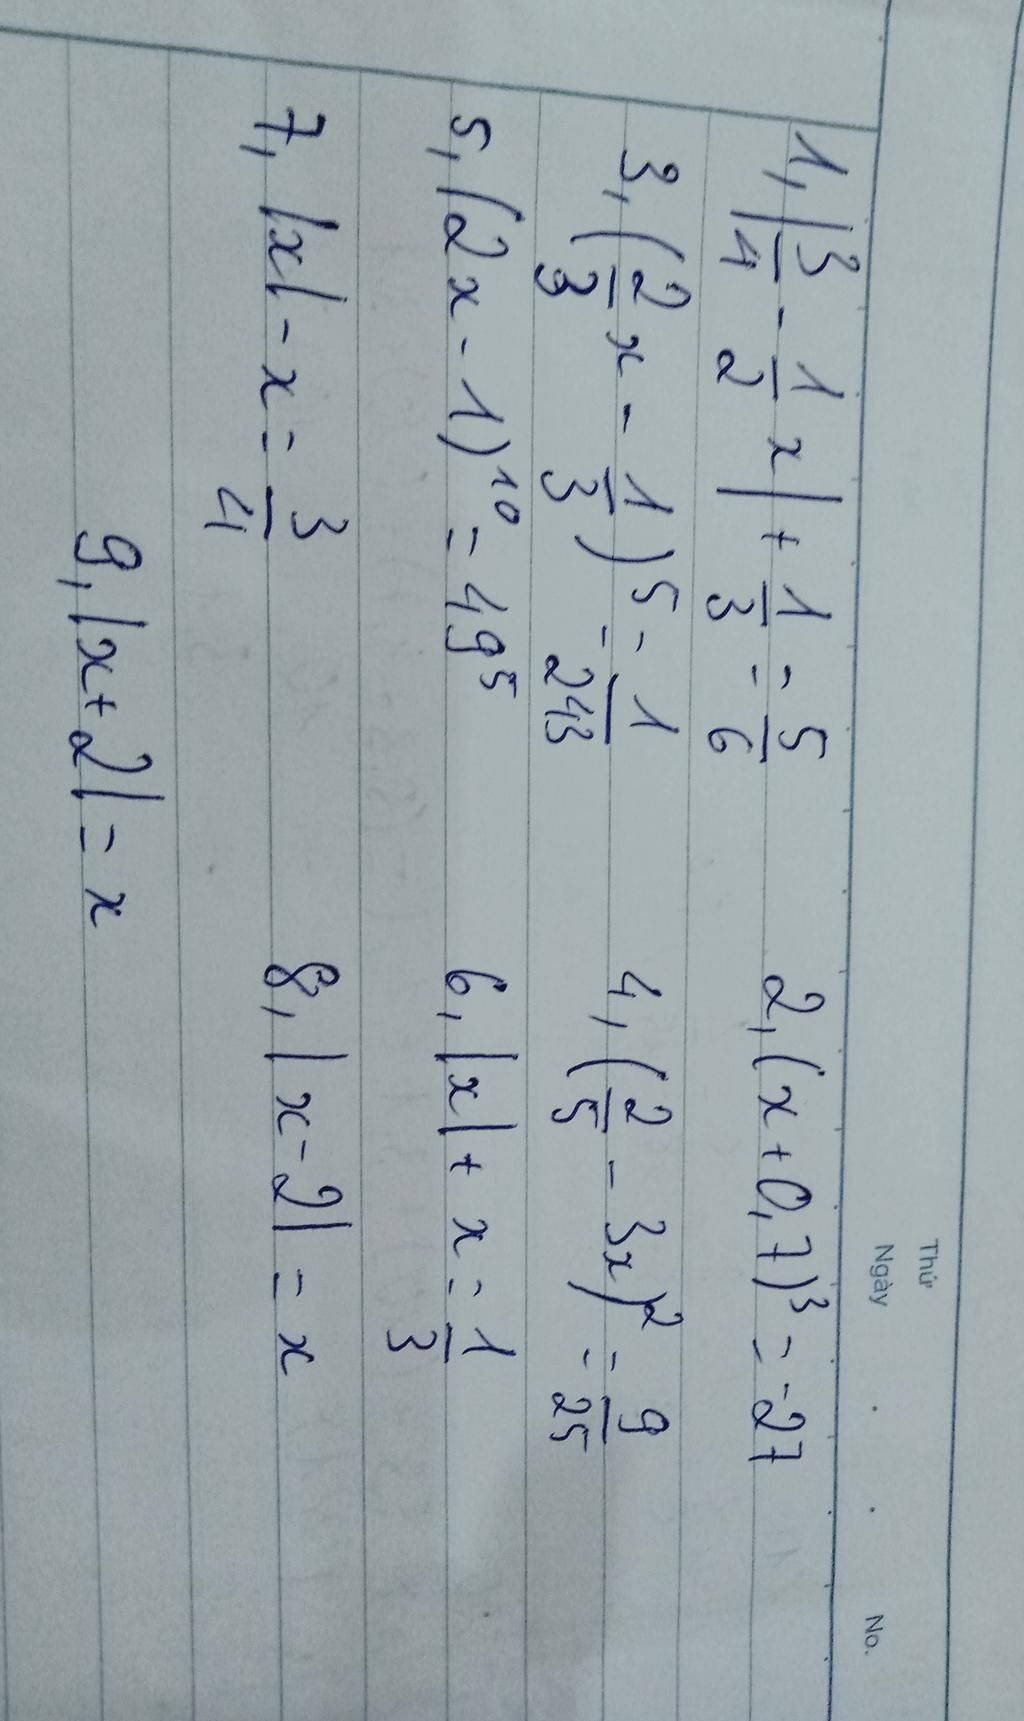 Thứ
Ngày No.
1, |3/4 - 1/2 x| + 1/3 = 5/6 2, (x + 0,7)³ = -27
3, (2/3 x - 1/3)⁵ = 1/243 4, (2/5 - 3x)² = 9/25
5, (2x - 1)¹⁰ = 49⁵ 6, |x| + x = 1/3
7, |x| - x = 3/4 8, |x - 2| = x
9, |x + 2| = x